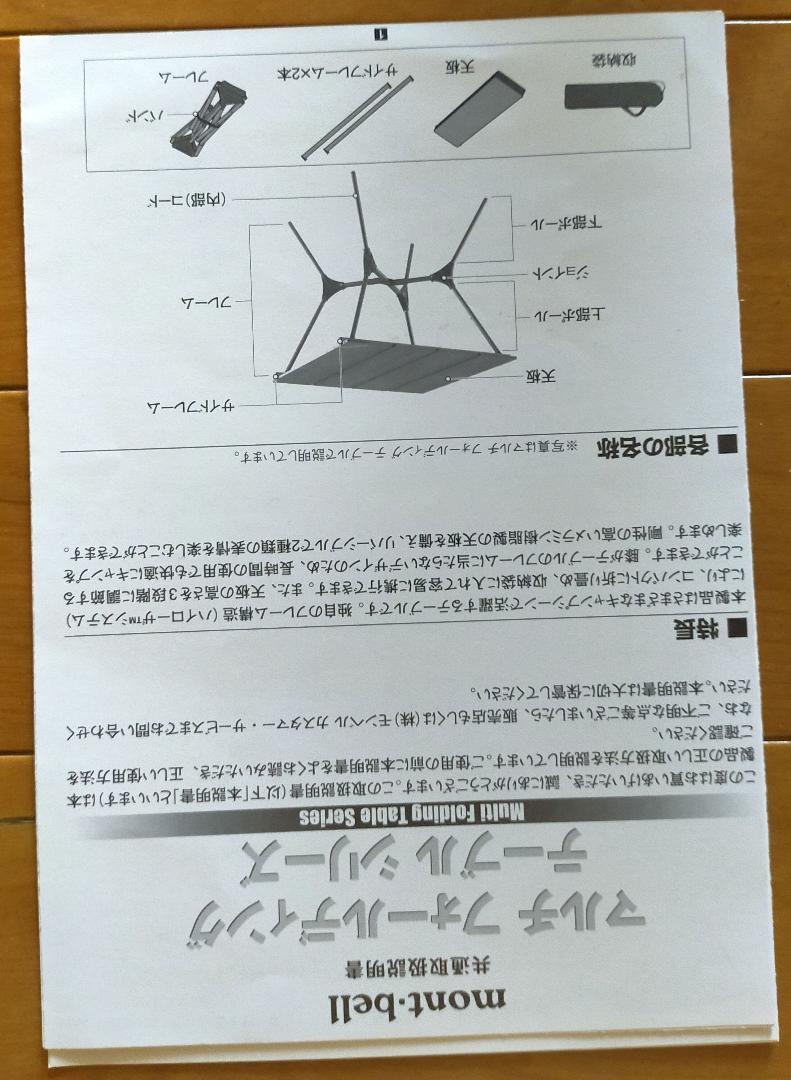 mont·bell
共通取扱説明書
マルチ フォールディング
テーブル シリーズ
Multi Folding Table Series
この度はお買いあげいただき、誠にありがとうございます。この取扱説明書(以下「本説明書」といいます)は本
製品の正しい取扱方法を説明しています。ご使用の前に本説明書をよくお読みいただき、正しい使用方法を
ご確認ください。
なお、ご不明な点等ございましたら、販売店もしくは(株)モンベル カスタマー・サービスまでお問い合わせく
ださい。本説明書は大切に保管してください。
■ 特長
本製品はさまざまなキャンプシーンで活躍するテーブルです。独自のフレーム構造(ハイローザ™システム)
により、コンパクトに折り畳め、収納袋に入れて容易に携行できます。また、天板の高さを3段階に調節する
ことができます。膝がテーブルのフレームに当たらないデザインのため、長時間の使用でも快適にキャンプを
楽しめます。剛性の高いメラミン樹脂製の天板を備え、リバーシブルで2種類の表情を楽しむことができます。
■ 各部の名称 ※写真はマルチ フォールディング テーブルで説明しています。
サイドフレーム
天板
上部ポール
フレーム
ジョイント
下部ポール
(内部)コード
収納袋
天板
サイドフレーム×2本
フレーム
バンド
1